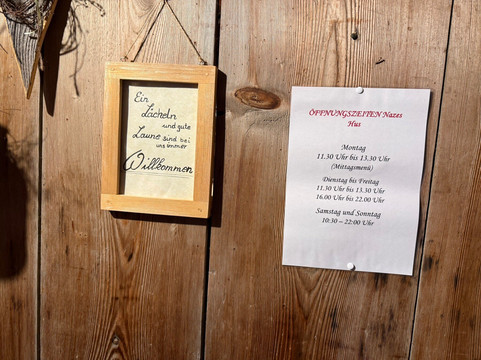 Ein
Lächeln
und gute
Laune
sind bei
uns immer
Willkommen
ÖFFNUNGSZEITEN Nazes
Hus
Montag
11.30 Uhr bis 13.30 Uhr
(Mittagsmenü)
Dienstag bis Freitag
11.30 Uhr bis 13.30 Uhr
16.00 Uhr bis 22.00 Uhr
Samstag und Sonntag
10:30 – 22:00 Uhr